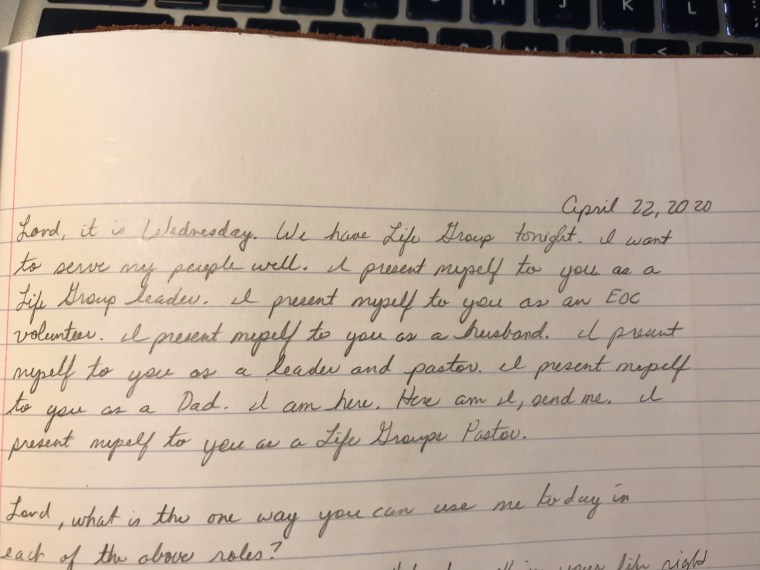 H J K L
April 22, 2020
Lord, it is Wednesday. We have Life Group tonight. I want
to serve my people well. I present myself to you as a
Life Group leader. I present myself to you as an EOC
volunteer. I present myself to you as a husband. I present
myself to you as a leader and pastor. I present myself
to you as a Dad. I am here. Here am I, send me. I
present myself to you as a Life Groups Pastor.
Lord, what is the one way you can use me today in
each of the above roles?
in your life right